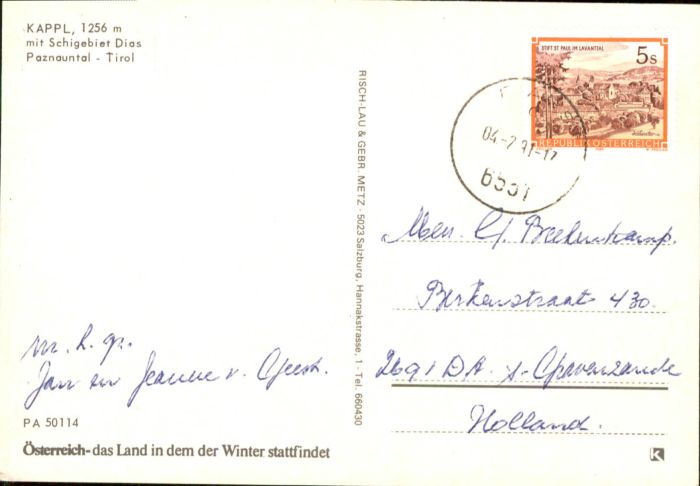 KAPPL, 1256 m
mit Schigebiet Dias
Paznauntal - Tirol
STIFT ST. PAUL IM LAVANTTAL
5s
REPUBLIK ÖSTERREICH
04-2 91-17
6551
RISCH-LAU & GEBR. METZ - 5023 Salzburg, Hannakstrasse, 1 - Tel. 660430
Berkenstraat 430.
2691 DA. s-Gravenzande
Holland.
m. h. gr.
Jan en Jeanne v. Geest.
PA 50114
Österreich-das Land in dem der Winter stattfindet
K